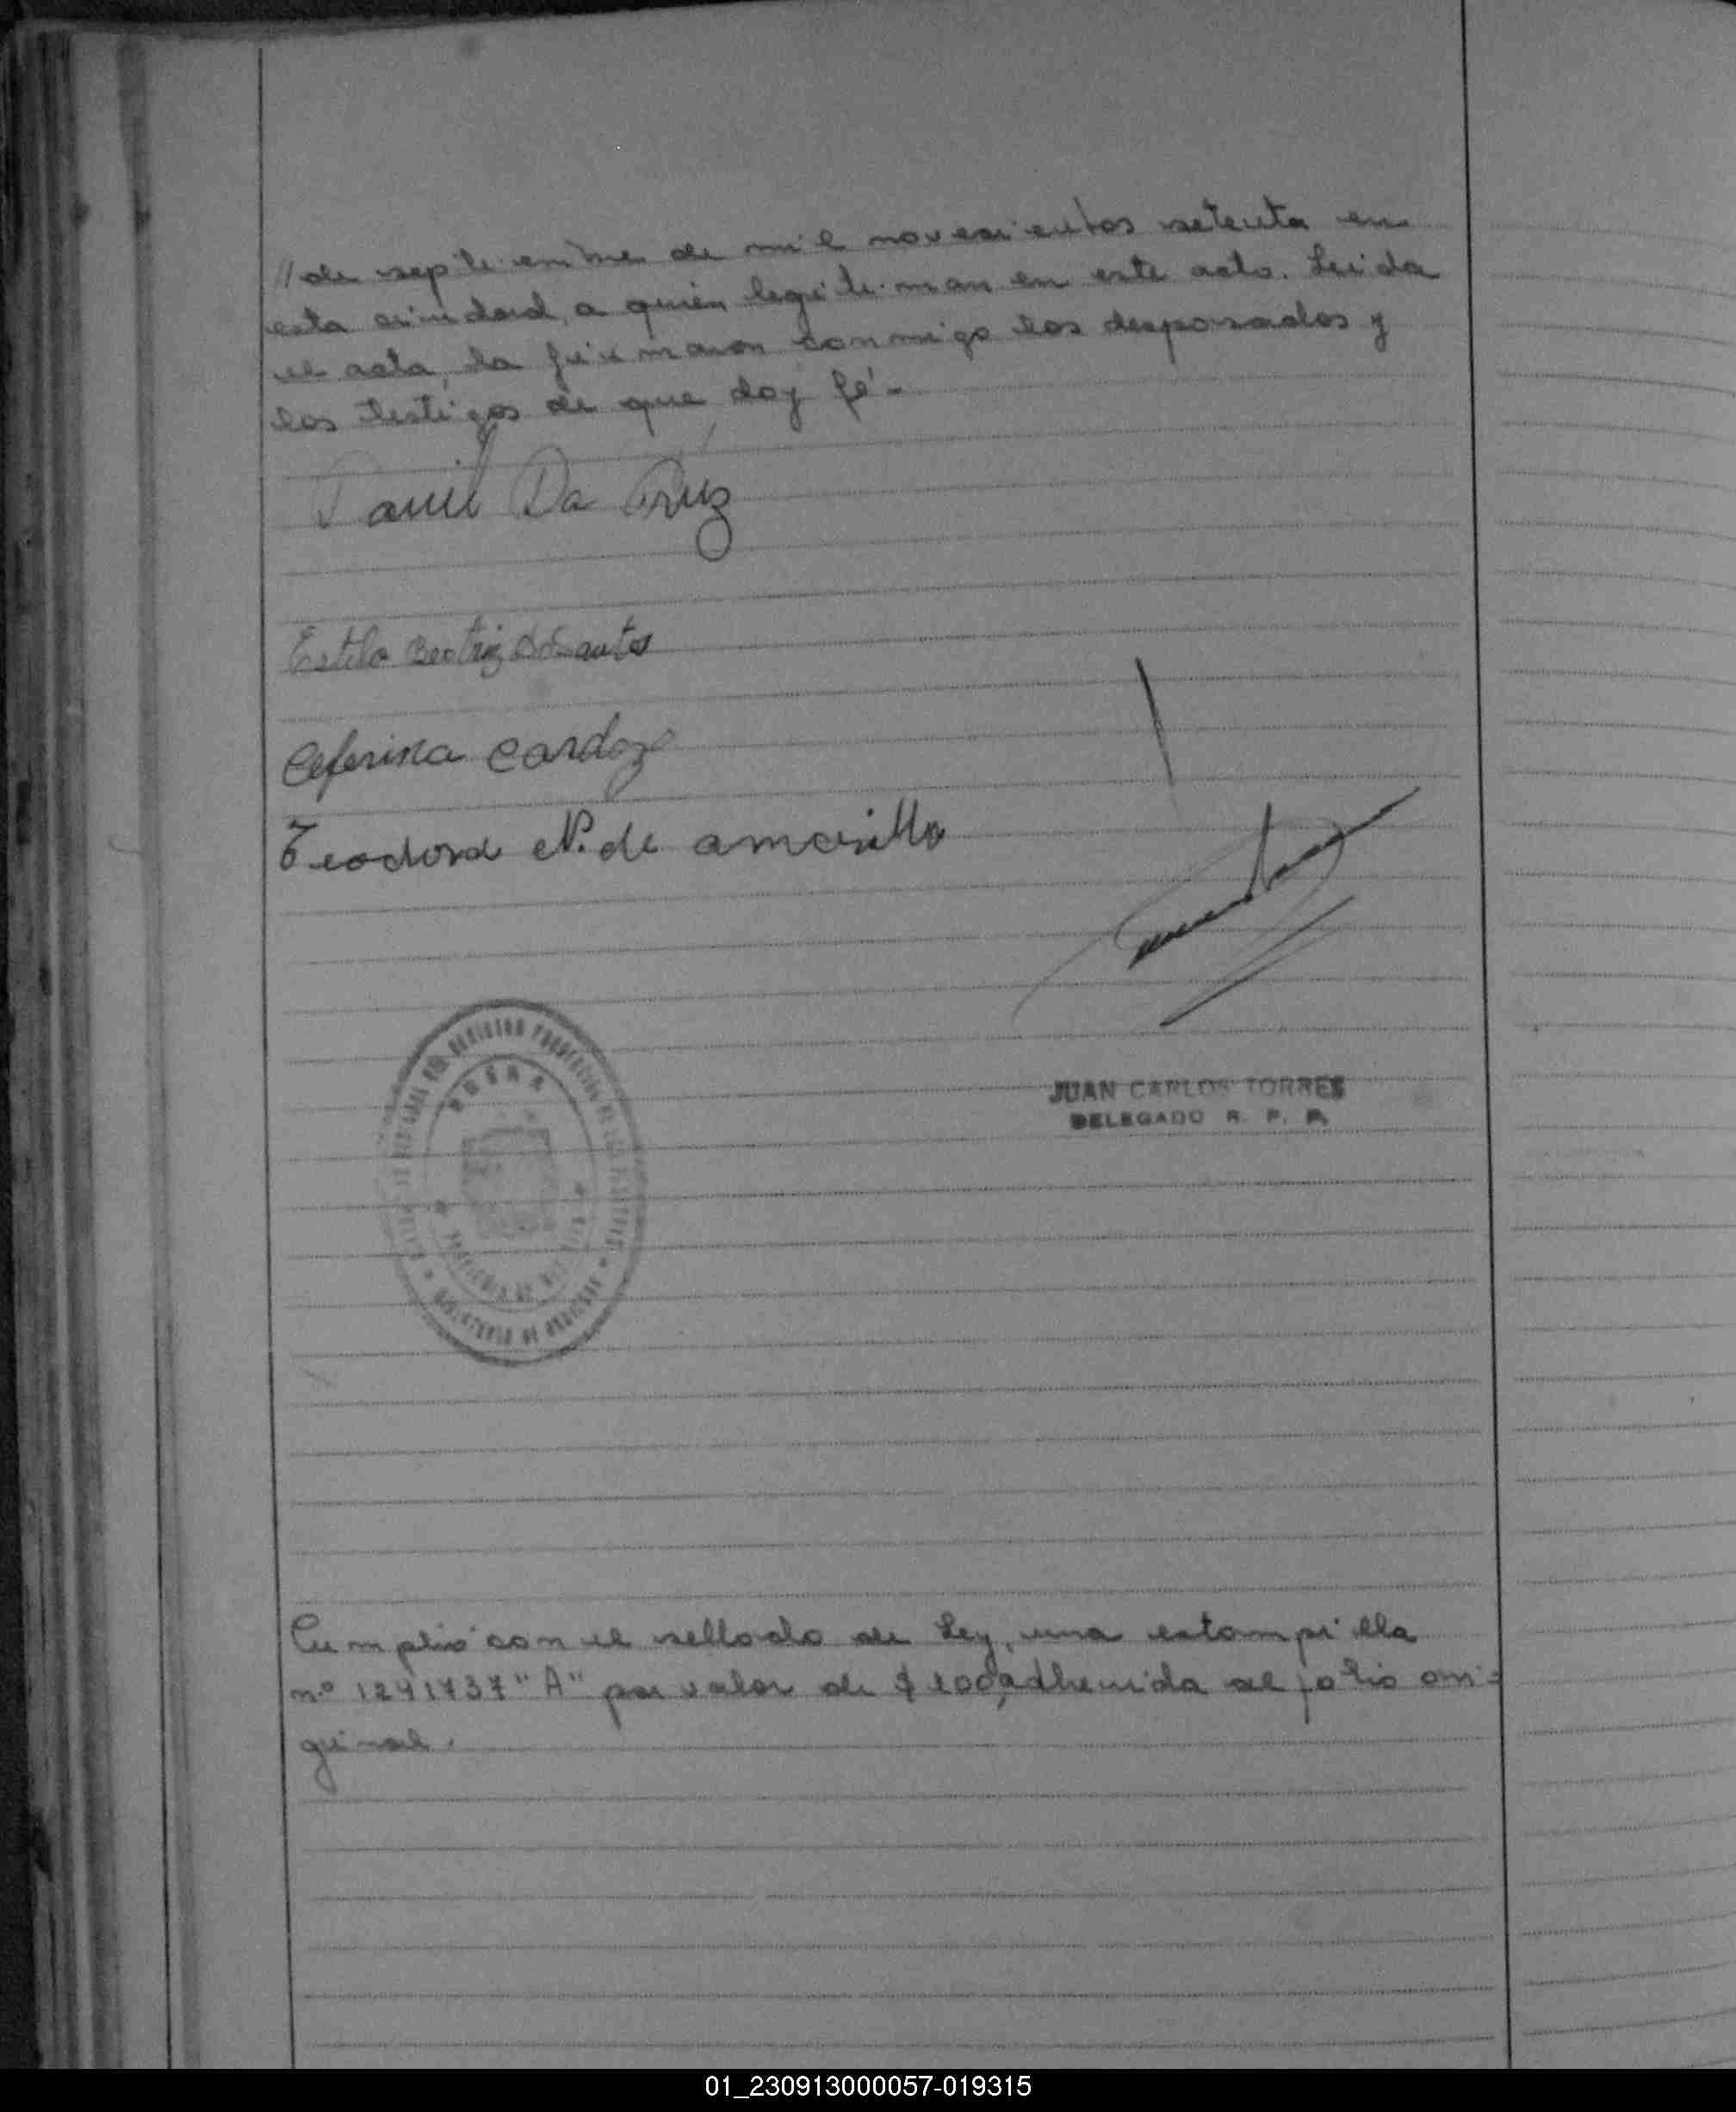 //de septiembre de mil novecientos setenta en
esta ciudad, a quién legitiman en este acto. Leida
el acta, la firmaron conmigo los desposados y
los testigos de que doy fé.-
Da Cruz
Estela Beatriz
Ceferina Cardozo
Teodora N. de amarilla
JUAN CARLOS TORRES
DELEGADO R. P. P.
POSADAS
Cumplió con el sellado de Ley, una estampilla
nº "A" por valor de $ 100, adherida al folio ori=
ginal.
01_230913000057-019315